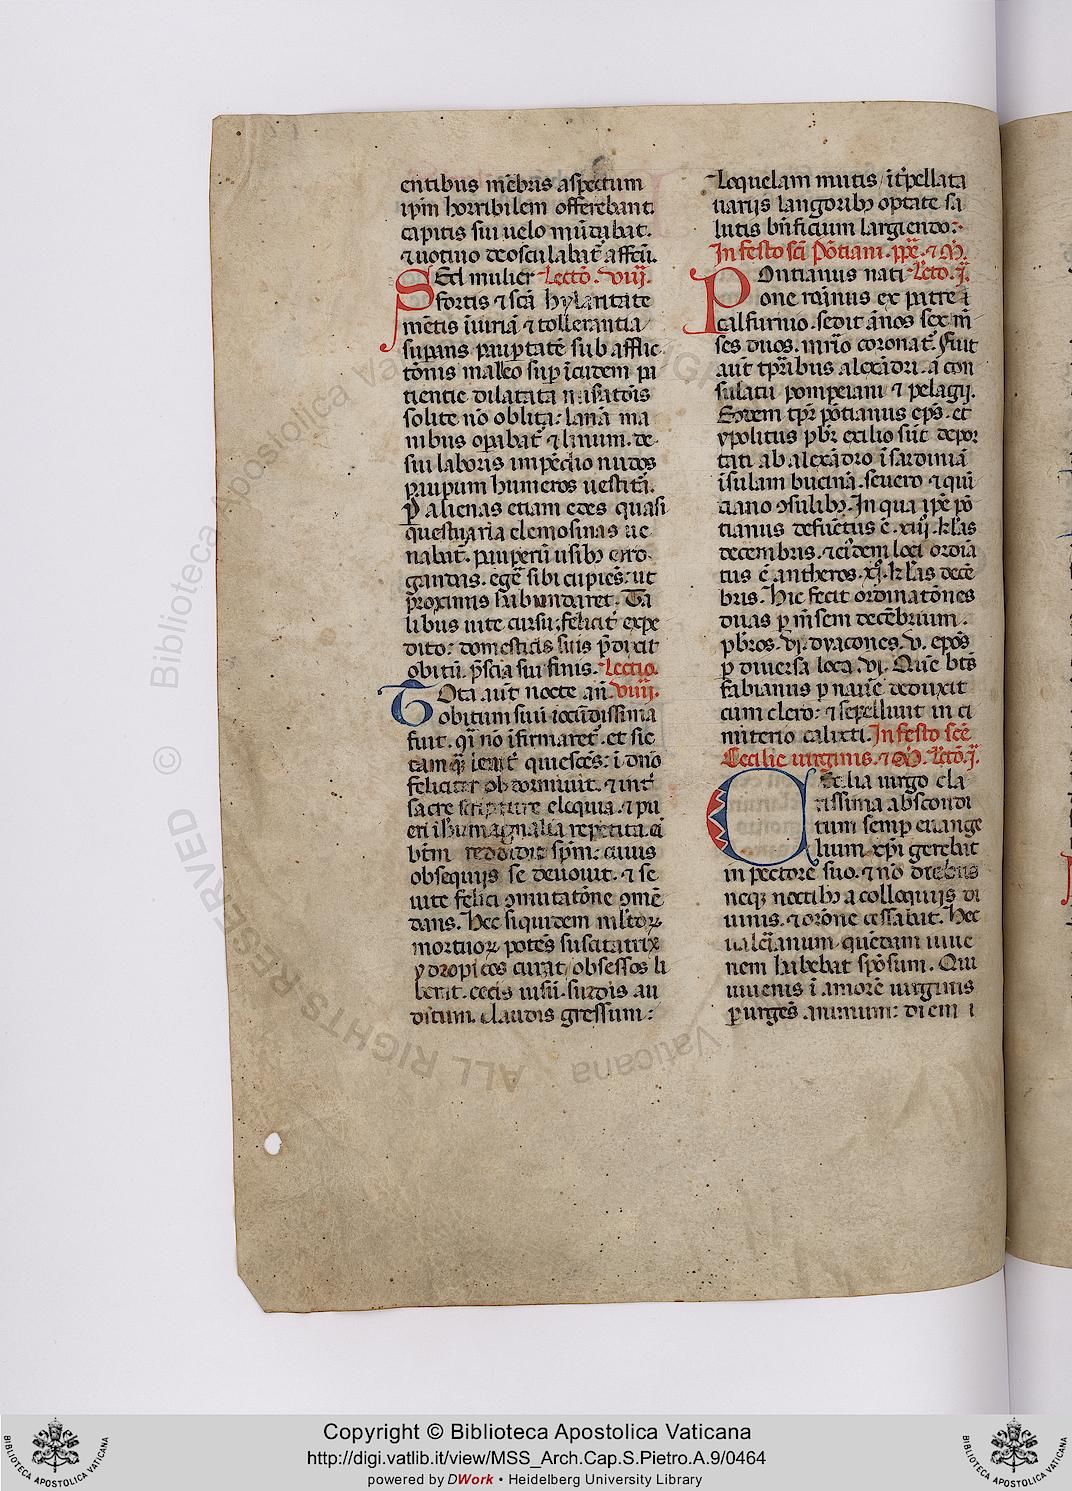 entibus mẽbris aspectum
ip̃m horribilem offerebant.
capitis sui uelo mũdabat.
⁊ uotiuo deosculabat̃ affcũ.
SEd mulier Lectõ. viij.
fortis ⁊ scã hylaritate
mẽtis iniuriã ⁊ tollerantia
supans paup̃tatẽ sub afflic
tõnis malleo sup ĩcudem pa
tientie dilatata usitatõis
solite nõ oblita: lanã ma
nibus op̃abat̃ ⁊ linum. de
sui laboris impẽdio nudos
paupum humeros uestitũ.
P̱ alienas etiam edes quasi
questuaria elemosinas ue
nabat̃. pauperũ usibꝫ ero
gandas. egẽ sibi cupiẽs: ut
proximis habundaret. Ta
libus uite cursu: felicit̃ expe
dito: domesticis suis p̃dixit
obitũ p̃scia sui finis. Lectio
TOta aut̃ nocte añ. viiij.
obitum suũ iocũdissima
fuit. q̃ nõ ĩfirmaret̃. et sic
tamq̃ ieiũt̃ quiescẽs: ĩ dño
feliciter obdormiuit. ⁊ int̃
sacre scripture eloquia. ⁊ pu
eri ih̃u magnalia repetita. ei
bt̃m reddidit sp̃m: cuius
obsequijs se deuouit. ⁊ se
uite felici ꝯmutatõne ꝯmẽ
dans. Hec siquidem ml̃toꝝ
mortuoꝝ potẽs suscitatrix
ydropicos curat obsessos li
berat. cecis uisũ. surdis au
ditum. claudis gressum:
Loquelam mutis / it̃pellata
uarijs langoribꝫ optate sa
lutis bñficium largiendo:
In festo scĩ Põtiani. pp̃e. ⁊ M̃.
POntianus nati Lcto. j.
one romanus ex patre
calfurnio. sedit ãnos sex m̃
ses duos. mr̃io coronat̃. Fuit
aut̃ tp̃ribus alexãdri. a con
sulatu pompeiani ⁊ pelagij.
Eodem tp̃r põtianus ep̃s. et
ypolitus pb̃r exilio sũt depor
tati ab alexãdro ĩ sardiniã
ĩsulam bucinã. seuero ⁊ quĩ
ciano ꝯsulibꝫ. In qua ip̃e põ
tianus defũctus ẽ. xiij. kl̃as
decembris. ⁊ ei᷒dem loci ordia
tus ẽ antheros. xj. kl̃as decẽ
bris. Hic fecit ordinatões
duas p m̃sem decẽbrium.
pb̃ros. vj. dyacones. v. epõs
p diuersa loca. vj. Quẽ bt̃s
fabianus p nauẽ deduxit
cum clero: ⁊ sepelliuit in ci
miterio calixti. In festo scẽ
Cecilie uirginis. ⁊ M̃. Lctõ. j.
CEcilia uirgo cla
rissima abscondi
tum semp euange
lium xp̃i gerebat
in pectore suo. ⁊ nõ diebus
neqꝫ noctibꝫ a colloquijs di
uinis. ⁊ orõne cessabat. Hec
ualeĩanum quẽdam iuue
nem habebat spõsum. Qui
iuuenis ĩ amorẽ uirginis
purgẽs animum: diem i
Copyright © Biblioteca Apostolica Vaticana
http://digi.vatlib.it/view/MSS_Arch.Cap.S.Pietro.A.9/0464
powered by DWork • Heidelberg University Library
BIBLIOTECA APOSTOLICA VATICANA
BIBLIOTECA APOSTOLICA VATICANA
© Biblioteca Apostolica Vaticana
ALL RIGHTS RESERVED